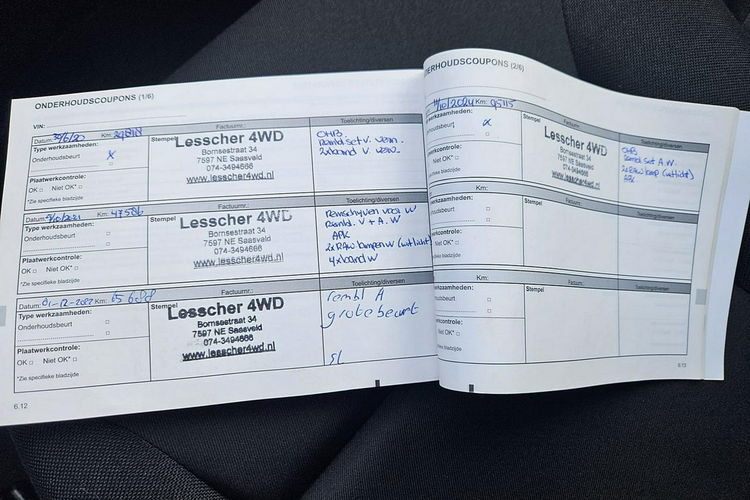 ONDERHOUDSCOUPONS (1/6)
VIN:
Datum: 30/6/20 Km:
Type werkzaamheden:
Onderhoudsbeurt X
Plaatwerkcontrole:
OK Niet OK*
*Zie specifieke bladzijde
Stempel Factuurnr.:
Lesscher 4WD
Bornsestraat 34
7597 NE Saasveld
074-3494666
www.lesscher4wd.nl
Toelichting/diversen
OHB
Remblset v. verv.
2xband V. verv.
Datum: Km: 47586
Type werkzaamheden:
Onderhoudsbeurt
Plaatwerkcontrole:
OK Niet OK*
*Zie specifieke bladzijde
Stempel Factuurnr.:
Lesscher 4WD
Bornsestraat 34
7597 NE Saasveld
074-3494666
www.lesscher4wd.nl
Toelichting/diversen
Remschijven voor W
Rembl. V + A. W
APK
2x RAW lampen W (wit licht)
4xband W
Datum: 01-12-2022 Km:
Type werkzaamheden:
Onderhoudsbeurt
Plaatwerkcontrole:
OK Niet OK*
*Zie specifieke bladzijde
Stempel Factuurnr.:
Lesscher 4WD
Bornsestraat 34
7597 NE Saasveld
074-3494666
www.lesscher4wd.nl
Toelichting/diversen
rembl A
grote beurt
6.12
ERHOUDSCOUPONS (2/6)
/10/2024 Km: 95115
werkzaamheden:
houdsbeurt x
werkcontrole:
Niet OK*
ecifieke bladzijde
Stempel Factuurnr.:
Lesscher 4WD
Bornsestraat 34
7597 NE Saasveld
074-3494666
www.lesscher4wd.nl
Toelichting/diversen
OHB
Rembl set A.W.
2x RAW lamp (wit licht)
APK
Km:
werkzaamheden:
houdsbeurt
werkcontrole:
Niet OK*
ecifieke bladzijde
Stempel Factuurnr.:
Toelichting/diversen
Km:
werkzaamheden:
houdsbeurt
werkcontrole:
Niet OK*
ecifieke bladzijde
Stempel Factuurnr.:
Toelichting/diversen
6.13